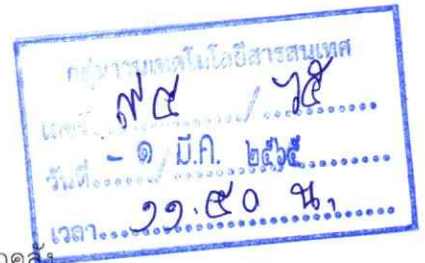 กลุ่มงานเทคโนโลยีสารสนเทศ
เลขรับ ๙๔ / ๖๕
วันที่ - ๑ มี.ค. ๒๕๖๕
เวลา ๑๑.๕๐ น.